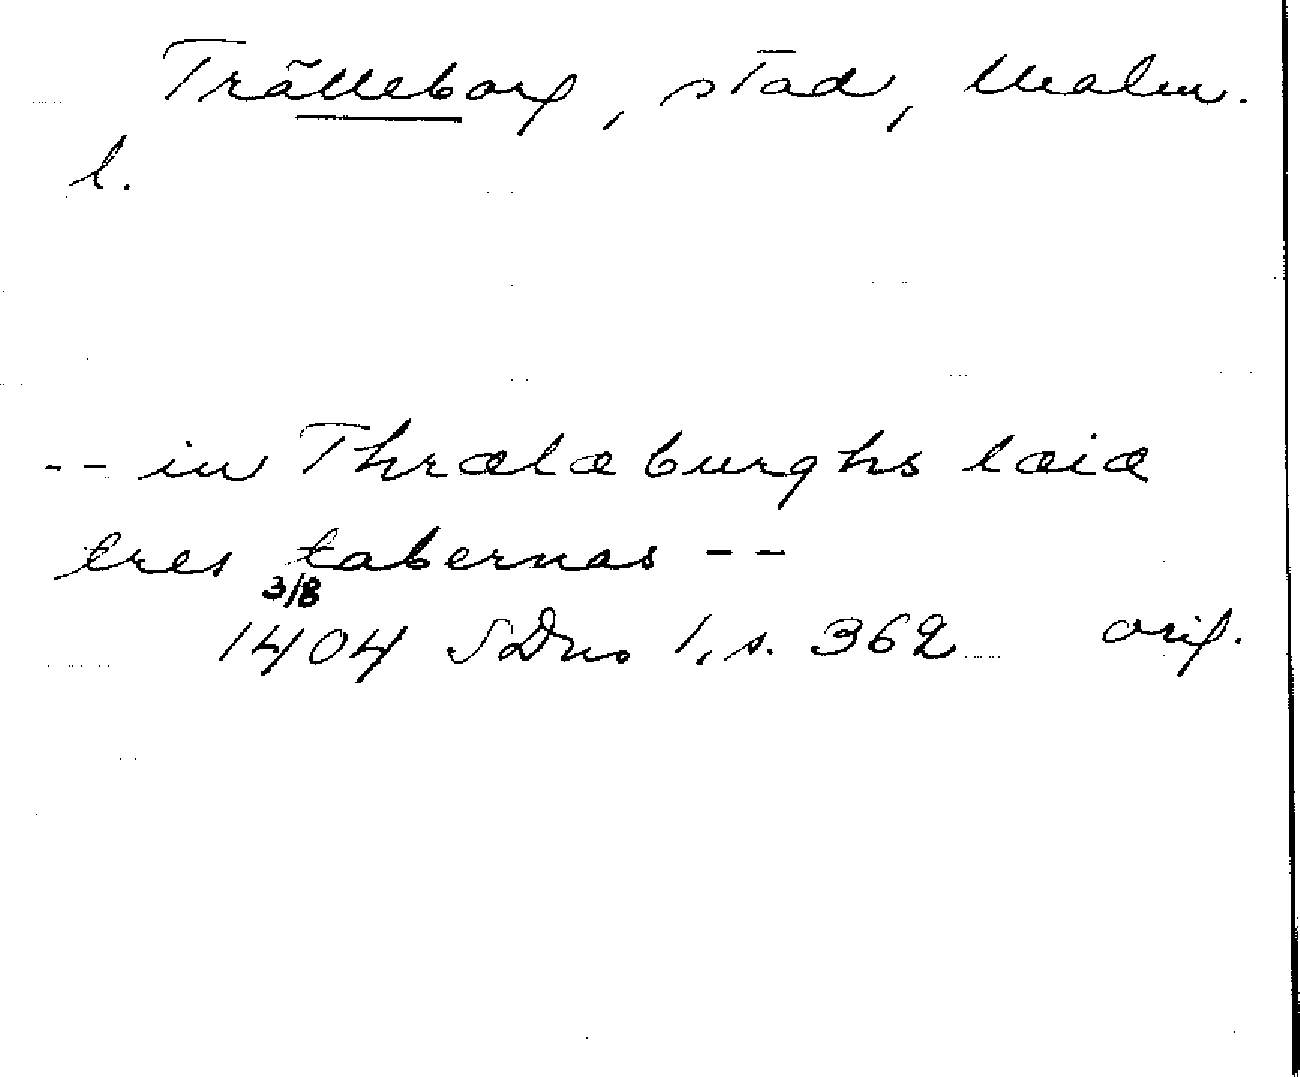 Trälleborg, stad, Malm.
l.
-- in Thrælæburghs læiæ
tres tabernas --
3/8
1404 SDns 1, s. 362 orig.